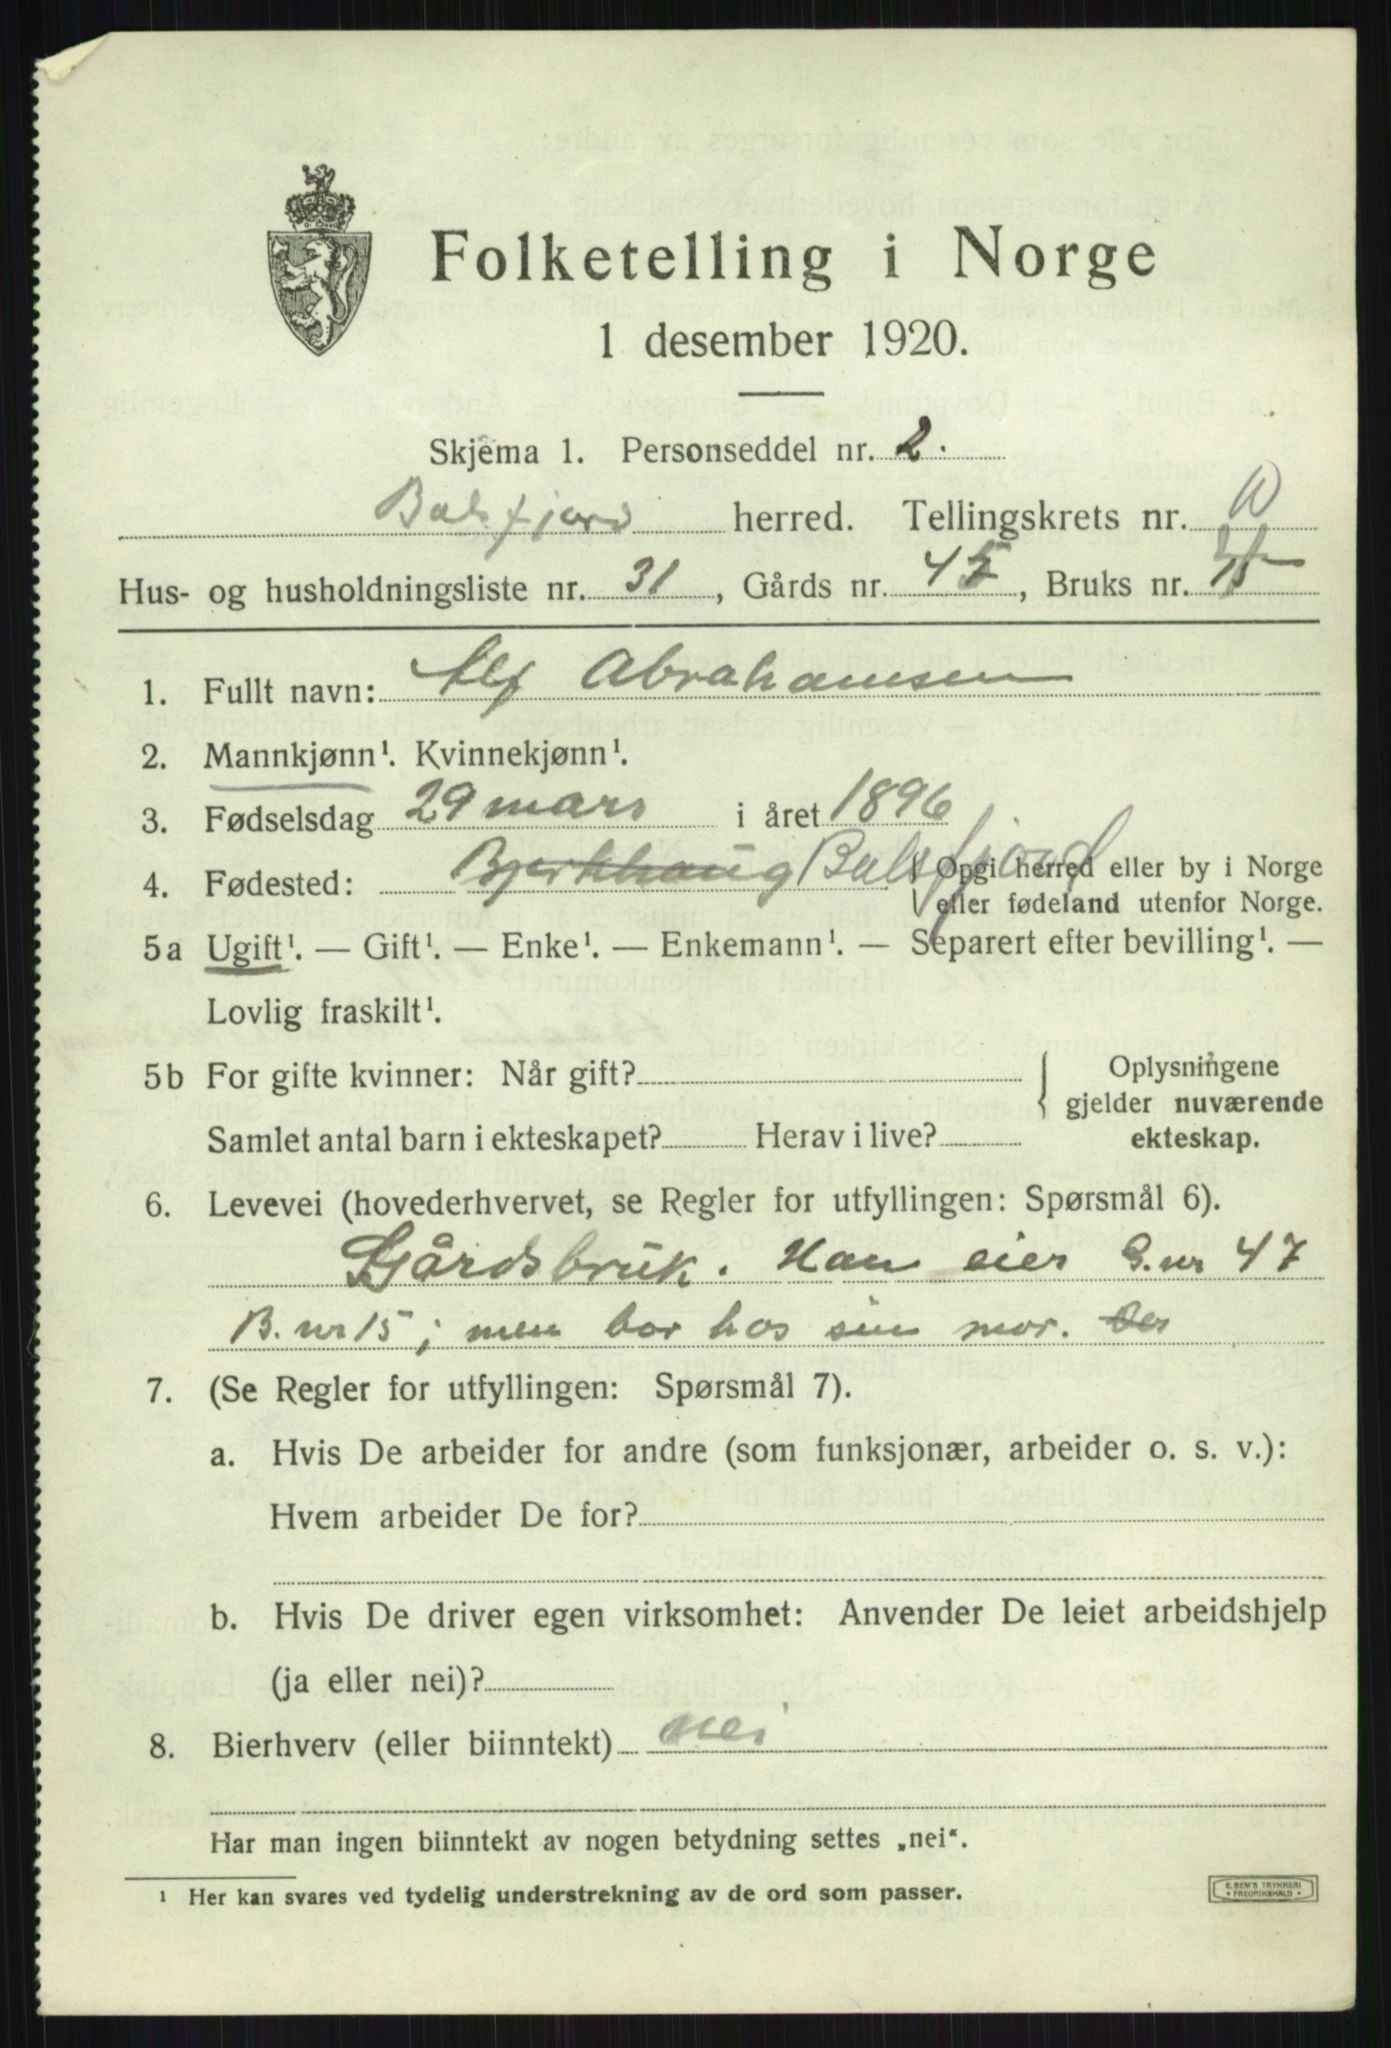 Folketelling i Norge
1 desember 1920.
Skjema 1. Personseddel nr. 2.
Balsfjord herred. Tellingskrets nr.
Hus- og husholdningsliste nr. 31, Gårds nr. 45, Bruks nr.
1. Fullt navn: Alf Abrahamsen
2. Mannkjønn¹. Kvinnekjønn¹.
3. Fødselsdag 29 mars i året 1896
4. Fødested: Bjerkhaug Balsfjord { Opgi herred eller by i Norge
eller fødeland utenfor Norge.
5a Ugift¹. — Gift¹. — Enke¹. — Enkemann¹. — Separert efter bevilling¹. —
Lovlig fraskilt¹.
5b For gifte kvinner: Når gift? { Oplysningene
gjelder nuværende
Samlet antal barn i ekteskapet? Herav i live? ekteskap.
6. Levevei (hovederhvervet, se Regler for utfyllingen: Spørsmål 6).
Gårdsbruk. Han eier G.nr 47
B.nr 15; men bor hos sin mor.
7. (Se Regler for utfyllingen: Spørsmål 7).
a. Hvis De arbeider for andre (som funksjonær, arbeider o. s. v.):
Hvem arbeider De for?
b. Hvis De driver egen virksomhet: Anvender De leiet arbeidshjelp
(ja eller nei)?
8. Bierhverv (eller biinntekt) nei
Har man ingen biinntekt av nogen betydning settes „nei“.
¹ Her kan svares ved tydelig understrekning av de ord som passer.
E. SEM'S TRYKKERI
FREDRIKSHALD